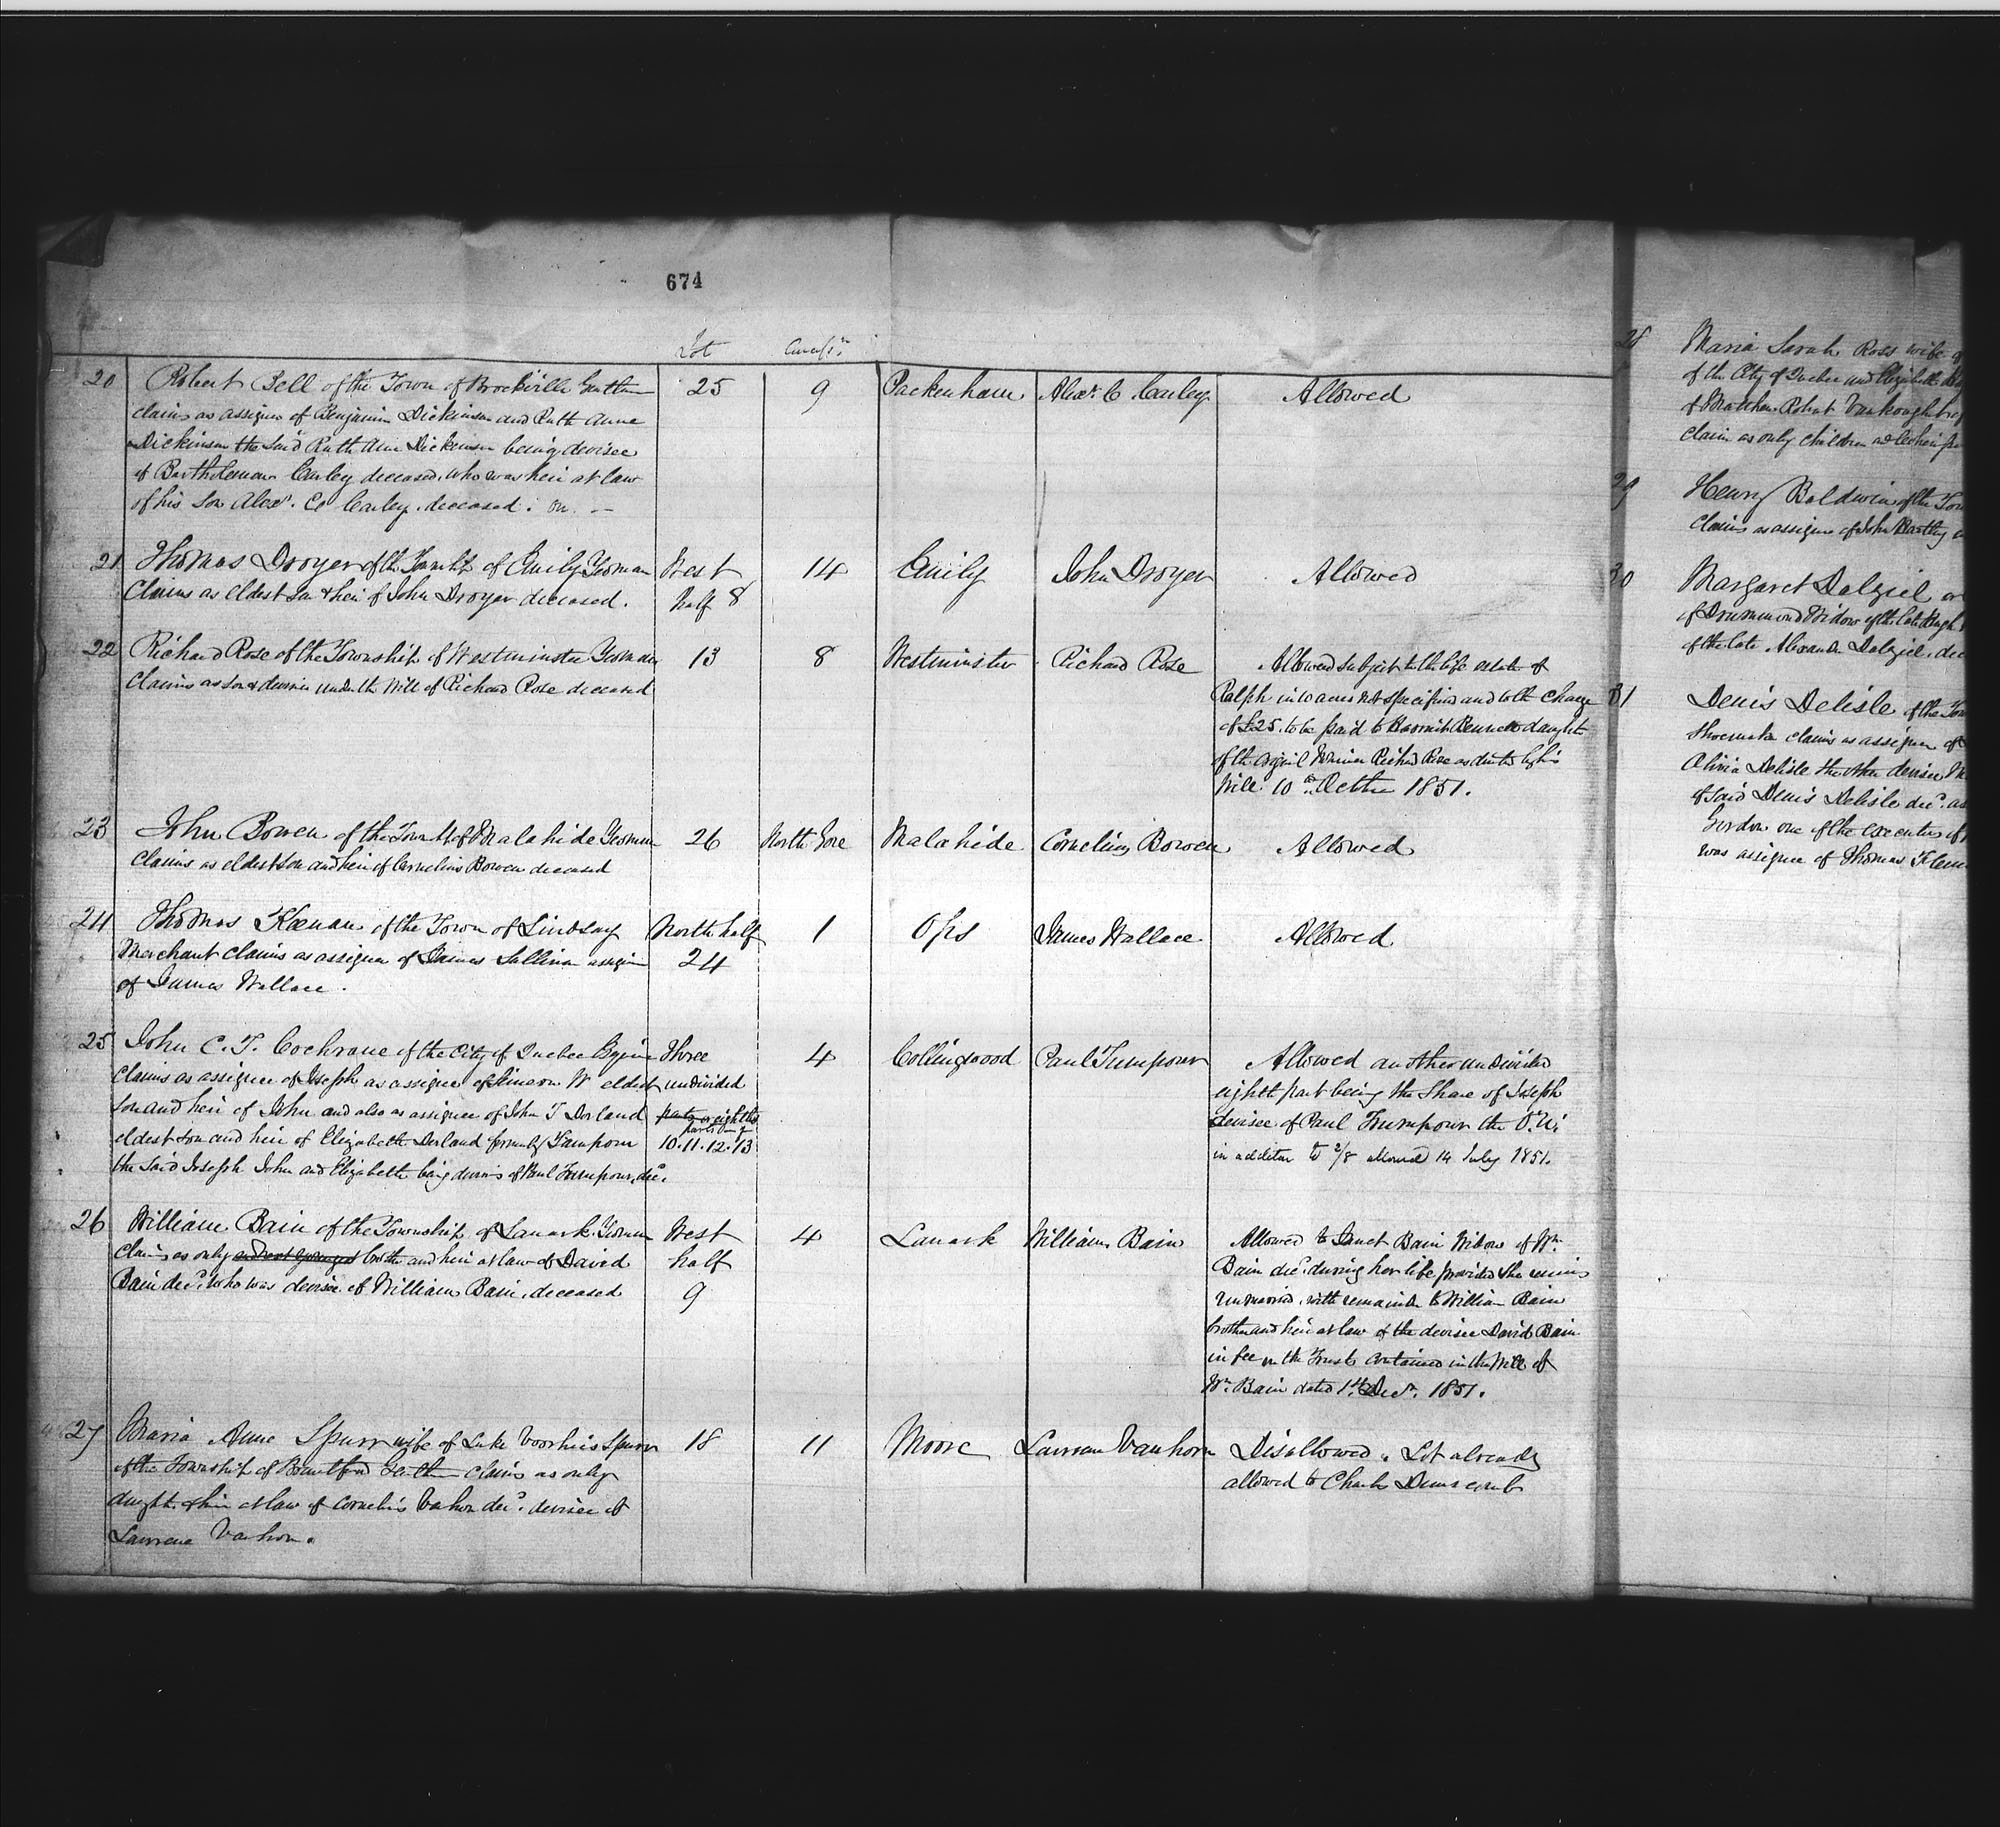 674
Lot Concess:n
20 Robert Bell of the Town of Brockville Gentln 25 9 Packenham Alexr C Carley Allowed
claims as assignee of Benjamin Dickinson and Ruth Anne
Dickinson the said Ruth Ann Dickinson being devisee
of Bartholemew Carley deceased, who was heir at law
of his son Alexr. C. Carley deceased.
21 Thomas Droyer of the Townshp of Emily Yeoman West 14 Emily John Droyer Allowed
Claims as eldest son & heir of John Droyer deceased. half 8
22 Richard Rose of the Township of Westminster Yeoman 13 8 Westminster Richard Rose Allowed subject to the life estate of
Claims as son & devisee under the Will of Richard Rose deceased Ralph in 10 acres not specified and to the charge
of £25. to be paid to Bennett daught
of the original Nominee Richard Rose as directed by his
Will 10th October 1851.
23 John Bowen of the Townsh of Malahide Yeoman 26 North Gore Malahide Cornelius Bowen Allowed
Claims as eldest son and heir of Cornelius Bowen deceased
24 Thomas Keenan of the Town of Lindsay North half 1 Ops James Wallace Allowed
Merchant claims as assignee of James Sullivan assignee 24
of James Wallace.
25 John C. T. Cochrane of the City of Quebec Three 4 Collingwood Paul Trumpour Allowed another undivided
Claims as assignee of Joseph as assignee of Simeon W eldest undivided eighth part being the share of Joseph
son and heir of John and also as assignee of John T Dorland parts or eighths devisee of Paul Trumpour the
parts of
eldest son and heir of Elizabeth Dorland formerly Trumpour 10.11.12.13 in addition to 2/8 allowed 14 July 1851.
the said Joseph John and Elizabeth being devisees of Paul Trumpour, decd.
26 William Bain of the Township of Lanark Yeoman West 4 Lanark William Bain Allowed to Janet Bain Widow of Wm.
Claims as only and next youngest broth and heir at law of David half Bain decd. during her life provided she remains
Bain decd. who was devisee of William Bain, deceased 9 unmarried, with remainder to William Bain
brother and heir at law of the devisee David Bain
in fee on the Trusts contained in the Will of
Wm. Bain dated 1st Decr. 1851.
27 Maria Anne Spurr wife of Luke Voorhies Spurr 18 11 Moore Lawrence Vanhorn Disallowed. Lot already
of the Township of Brantford Gentln claims as only allowed to Charles
daught. & heir at law of Cornelius Vanhorn decd. devisee of
Lawrence Vanhorn.
28 Maria Sarah Ross wife
of the City of Quebec and Elizabeth
of Matthew Robert Vankoughnet
claim as only children
29 Henry Baldwin of the
Claims as assignee of John Bartley
30 Margaret Dalziel
of Drummond Widow of the late Hugh
of the late Alexander Dalziel, dec
31 Denis Delisle of the
Shoemaker claims as assignee of
Olivia Delisle the other devisee
of said Denis Delisle decd. as
Gordon one of the executors of
was assignee of Thomas